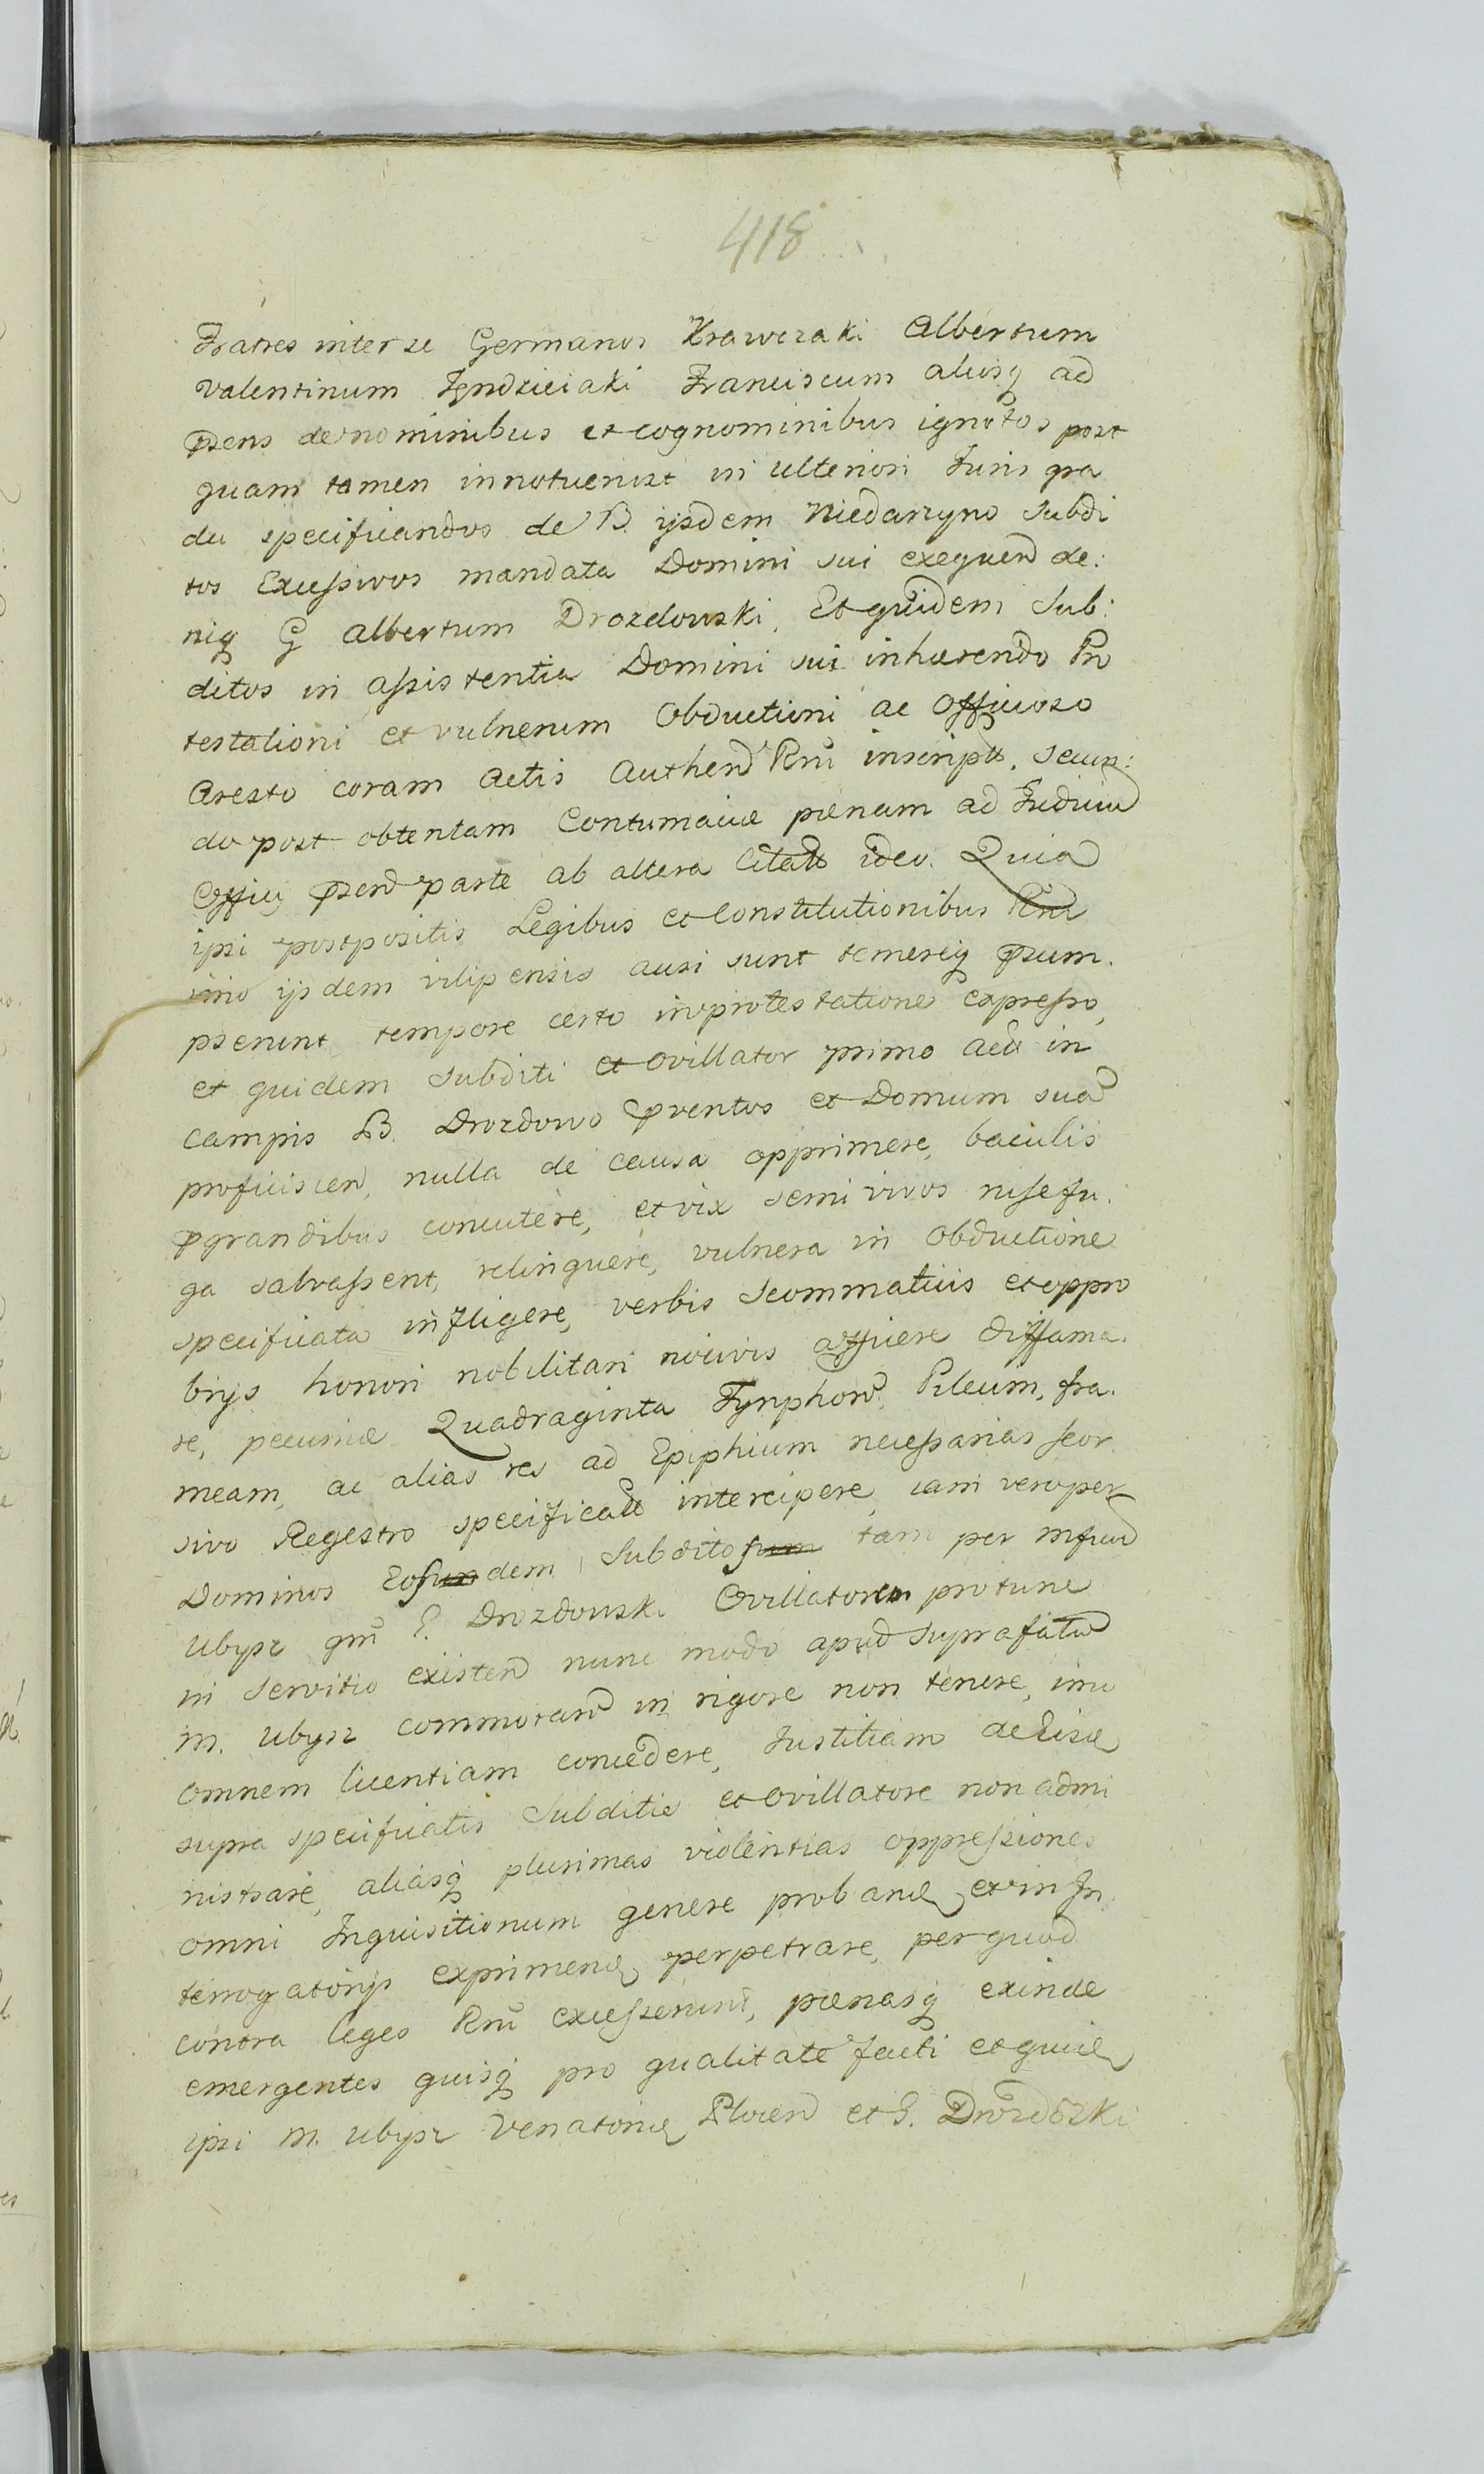 418
Fratres inter se Germanos Krawczaki Albertum
Valentinum Jendrzieiaki Franciscum aliosq ad
prsens de nominibus et cognominibus ignotos post
quam tamen innotuerint in ulteriori Juris gra
du specificandos de B. ijsdem Niedarzyno Subdi
tos Excessivos mandata Domini sui exequen de:
niq G Albertum Drozdowski, Et quidem Sub:
ditos in assistentia Domini sui inhærendo Pro
testationi et vulnerum Obductioni ac Officioso
Aresto coram Actis Authen Rni inscript. secun:
do post obtentam Contumaciæ pœnam ad Judicia
Officij prsen parte ab altera Citatt ideo. Quia
ipsi postpositis Legibus et Constitutionibus Rni
imo ijsdem vilipensis ausi sunt temereq prsum.
pserunt tempore certo in protestatione expresso,
et quidem Subditi et Ovillator primo Act in
campis B. Drozdowo prventos et Domum sua
proficiscen, nulla de causa opprimere, baculis
prgrandibus concutere, et vix semi vivos ni se fu.
ga salvassent, relinquere, vulnera in Obductione
specificata infligere, verbis Scommaticis et oppro
brijs honori nobilitari nocivis afficere diffama.
re, pecuniæ Quadraginta Tynphon Pileum, fra.
meam, ac alias res ad Epiphium necessarias seor
sivo Regestro specificatt intercipere, iam vero per
Dominos Eosundem Subditosum tam per mfcum
Ubysz qm G. Drozdowski Ovillatorem pro tunc
in servitio existen nunc modo apud suprafatum
M. Ubysz commoran in rigore non tenere, imo
omnem licentiam concedere, Justitiam de
supra specificatis Subditis et Ovillatore non admi
nistrare, aliasq plurimas violentias oppressiones
omni Inquisitionum genere proban et in In.
terrogatorijs exprimen perpetrare, per quod
contra leges Rni excesserunt, pœnasq exinde
emergentes quisq pro qualitate facti et quid
ipsi M. Ubysz Venatori Plocen et G. Drozdoski